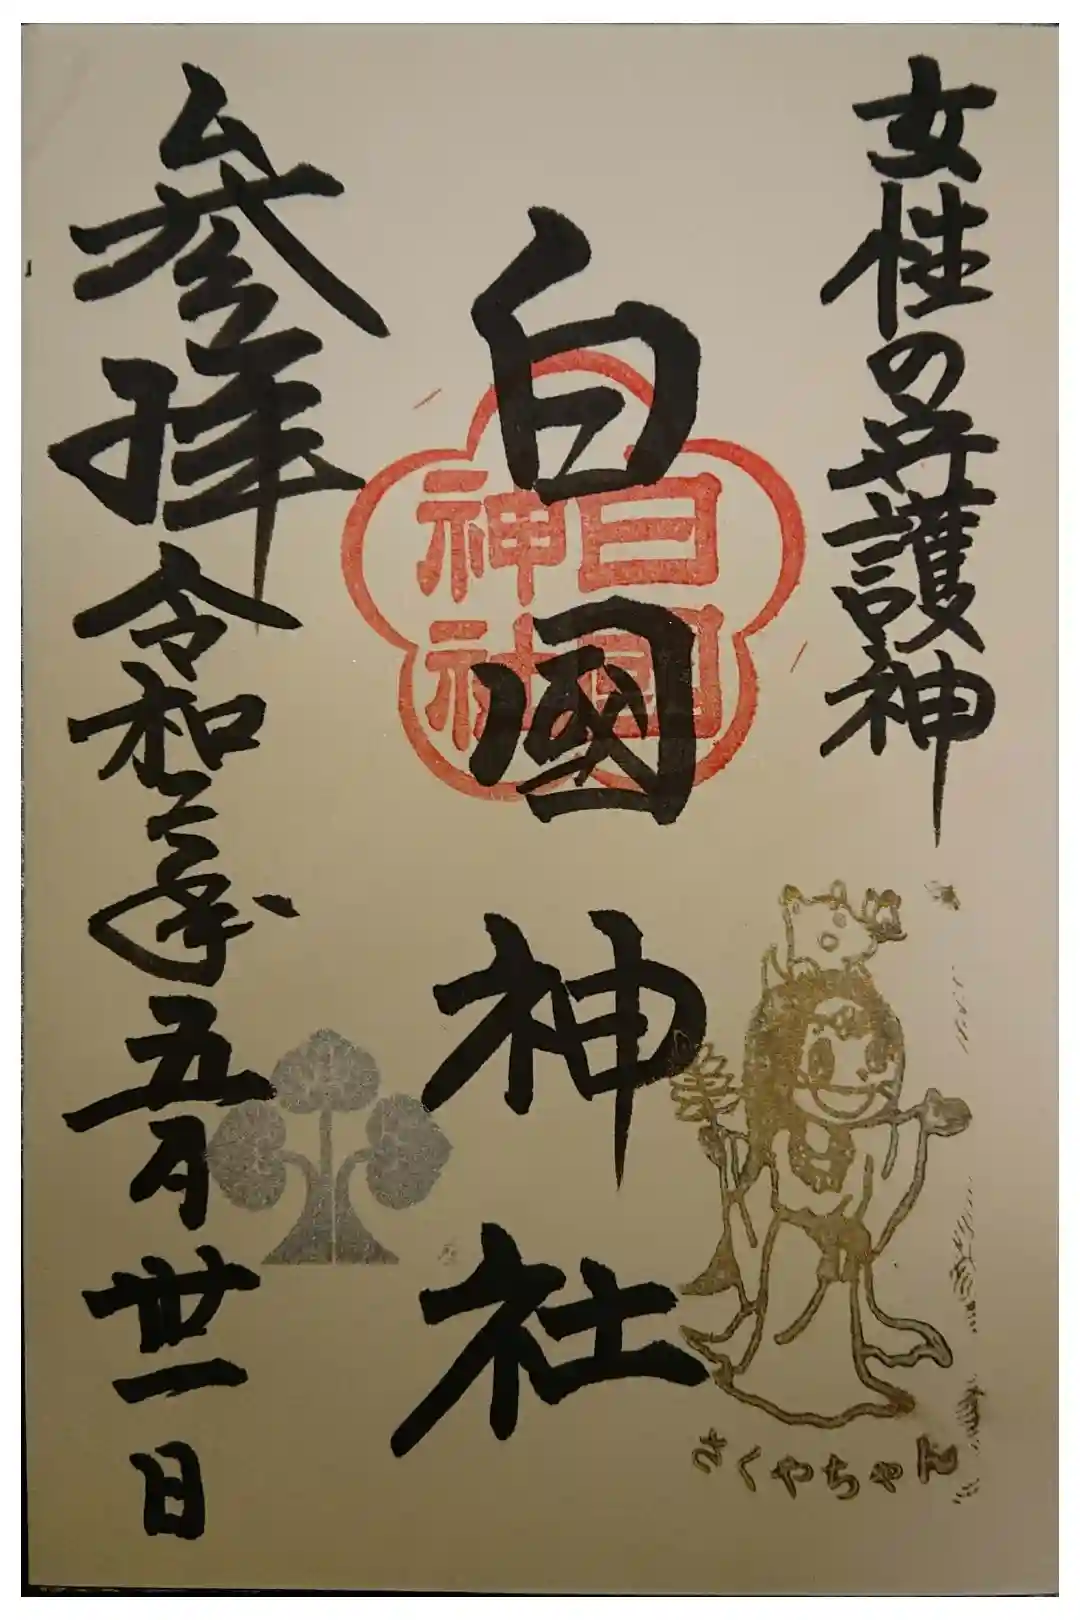 女性の守護神
白國神社
白國神社
参拝
令和二年五月卅一日
さくやちゃん